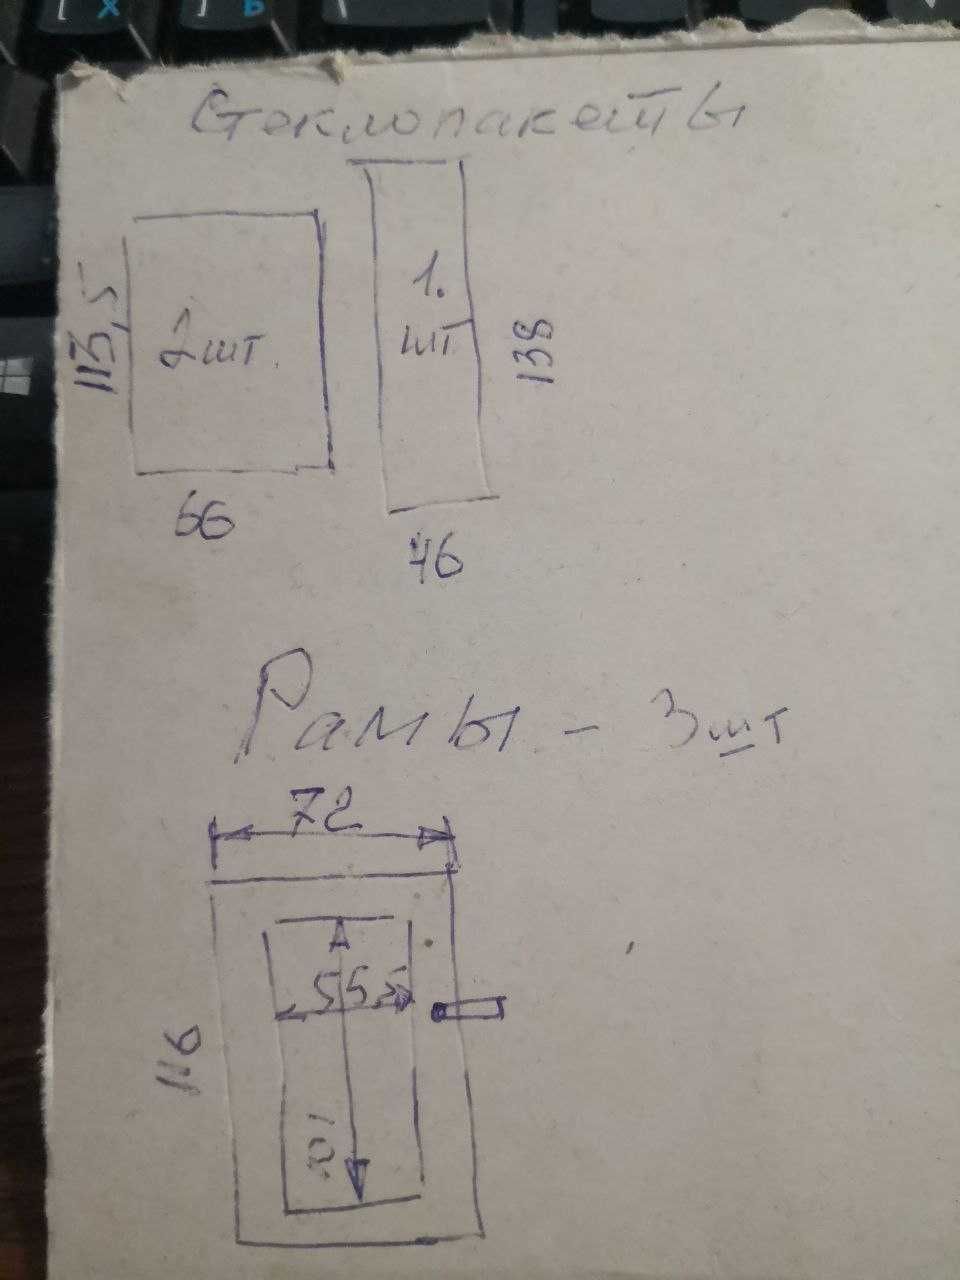 Стеклопакеты
113,5
2шт.
1.
шт
138
66
46
Рамы - 3шт
72
55,5
116
101